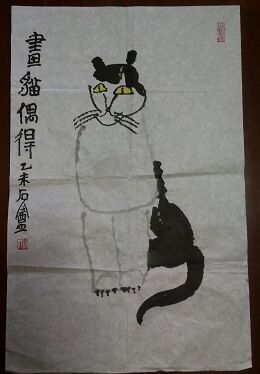 畫貓偶得
乙未石